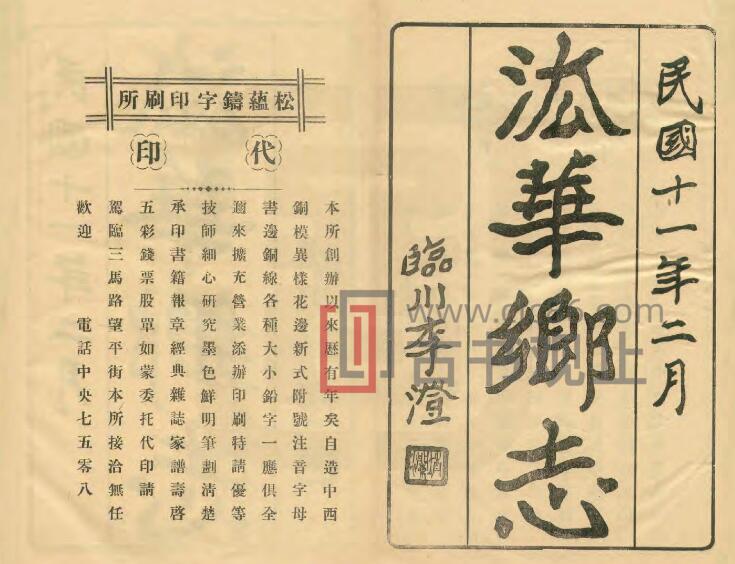 民國十一年二月
法華鄉志
臨川李澄
松蘊鑄字印刷所
代印
本所創辦以來歷有年矣自造中西
銅模異樣花邊新式附號注音字母
書邊銅線各種大小鉛字一應俱全
邇來擴充營業添辦印刷特請優等
技師細心研究墨色鮮明筆劃清楚
承印書籍報章經典雜誌家譜壽啓
五彩錢票股單如蒙委托代印請
駕臨三馬路望平街本所接洽無任
歡迎　電話中央七五零八
古书线上